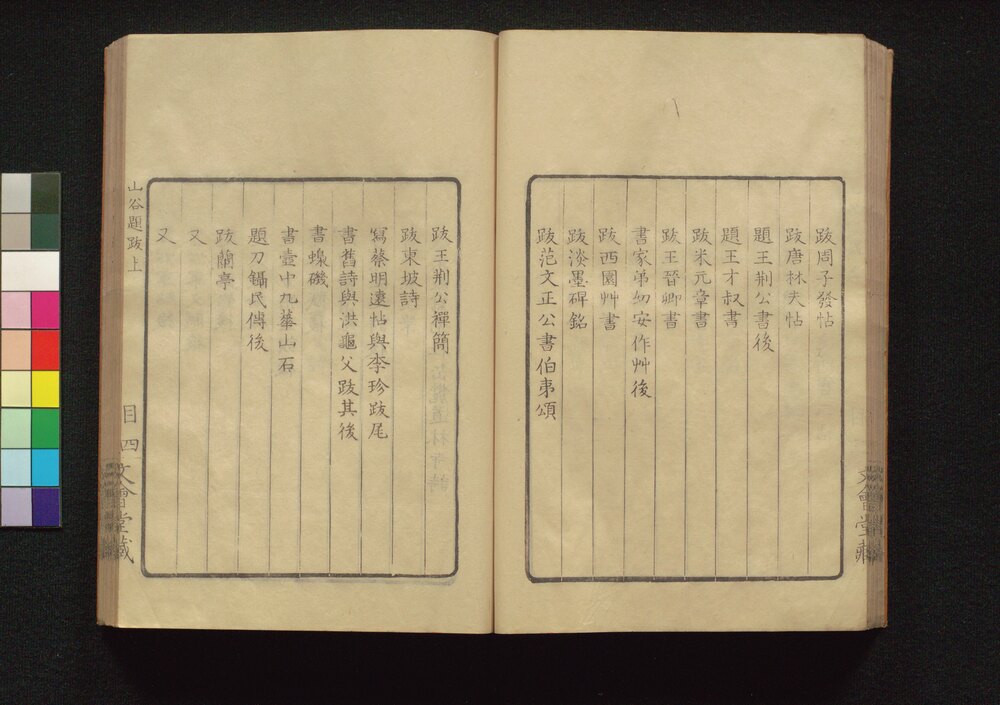 跋周子發帖
跋唐林夫帖
題王荆公書後
題王才叔書
跋米元章書
跋王晉卿書
書家弟幼安作艸後
跋西園艸書
跋漆墨碑銘
跋范文正公書伯夷頌
文會堂藏
跋王荆公禪簡
跋東坡詩
寫蔡明遠帖與李珍跋尾
書舊詩與洪龜父跋其後
書蟂磯
書壺中九華山石
題刀鑷民傳後
跋蘭亭
又
又
山谷題跋上
目
四
文會堂藏